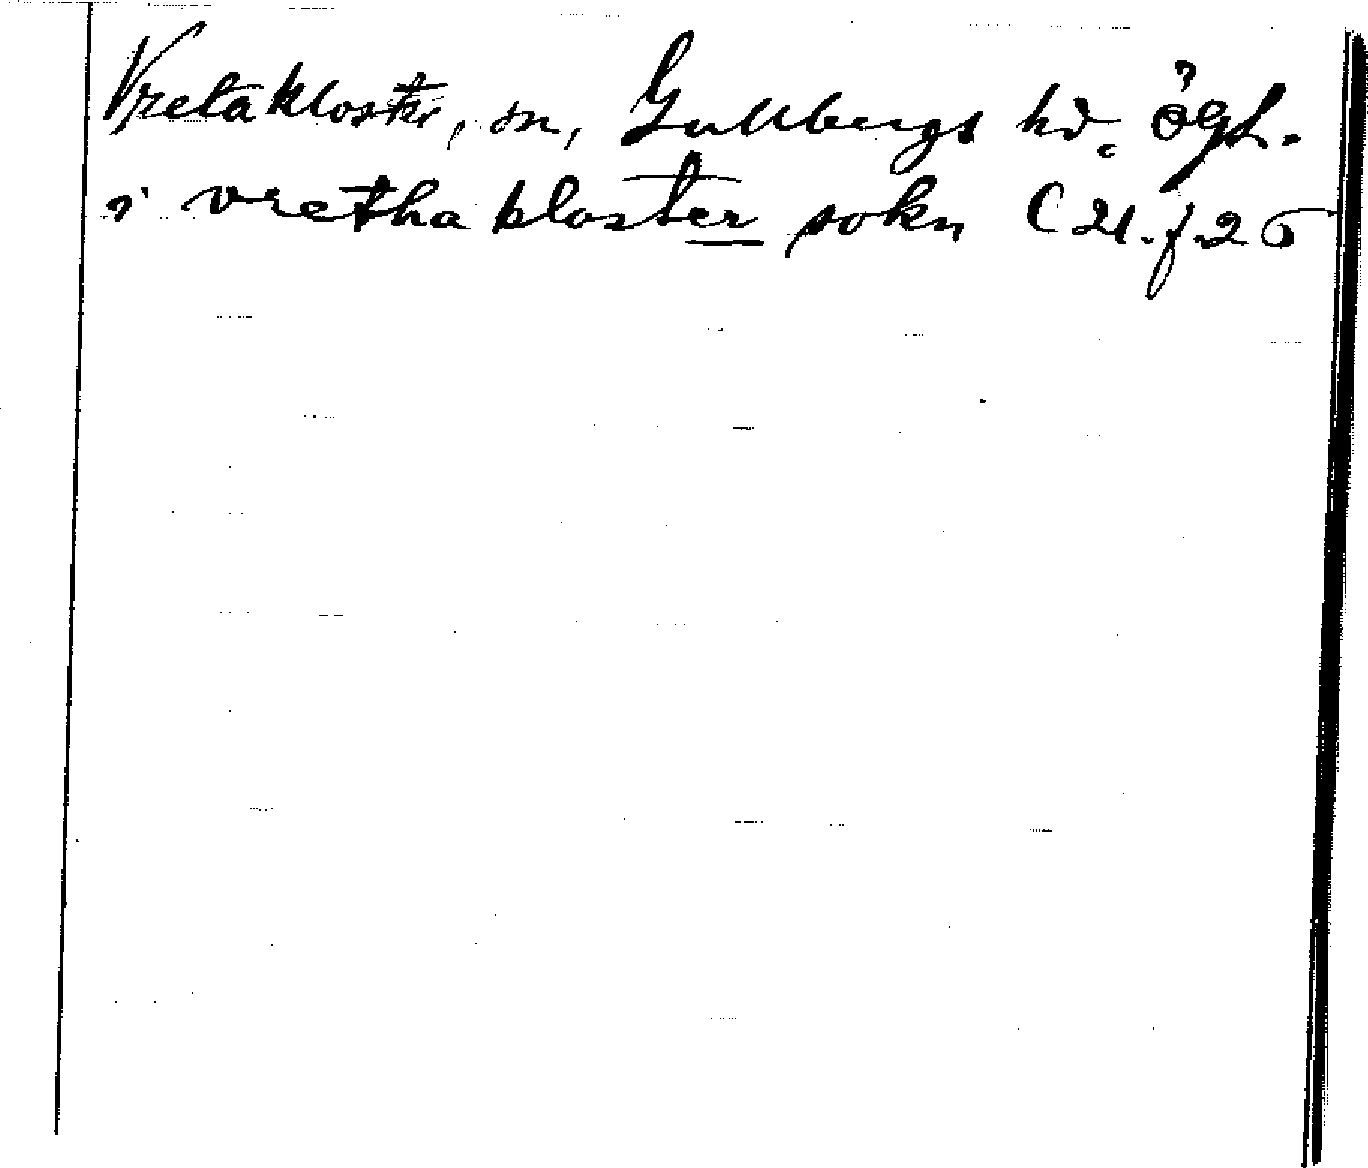 Vreta kloster, sn, Gullbergs hd. ÖgL.
i vretha kloster sokn C 21. f. 26